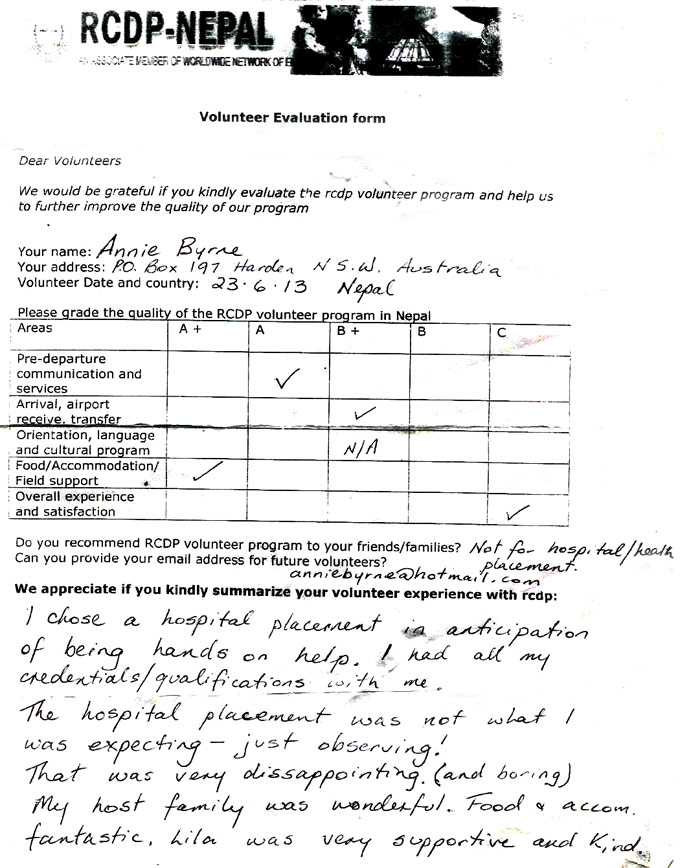 RCDP-NEPAL
AN ASSOCIATE MEMBER OF WORLDWIDE NETWORK OF
Volunteer Evaluation form
Dear Volunteers
We would be grateful if you kindly evaluate the rcdp volunteer program and help us
to further improve the quality of our program
Your name: Annie Byrne
Your address: P.O. Box 197 Harden N S.W. Australia
Volunteer Date and country: 23.6.13 Nepal
Please grade the quality of the RCDP volunteer program in Nepal
Areas A + A B + B C
Pre-departure
communication and
services ✓
Arrival, airport
receive, transfer ✓
Orientation, language
and cultural program N/A
Food/Accommodation/
Field support ✓
Overall experience
and satisfaction ✓
Do you recommend RCDP volunteer program to your friends/families? Not for hospital/health
Can you provide your email address for future volunteers? placement.
anniebyrne@hotmail.com
We appreciate if you kindly summarize your volunteer experience with rcdp:
I chose a hospital placement in anticipation
of being hands on help. I had all my
credentials/qualifications with me.
The hospital placement was not what I
was expecting – just observing!
That was very dissappointing. (and boring)
My host family was wonderful. Food & accom.
fantastic. Lila was very supportive and kind.